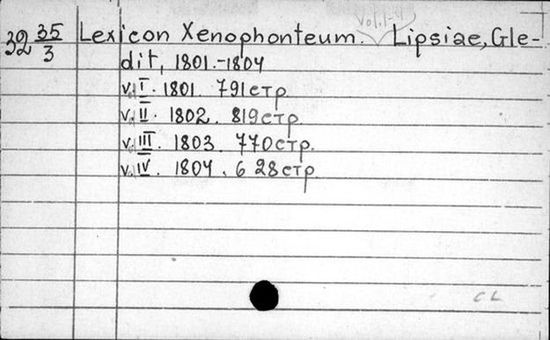 Vol. 1-4
32 35/3 Lexicon Xenophonteum. Lipsiae, Gle-
dit, 1801.-1804
v. I. 1801. 791стр
v. II. 1802. 819стр
v. III. 1803. 770стр.
v. IV. 1804. 628стр
CL